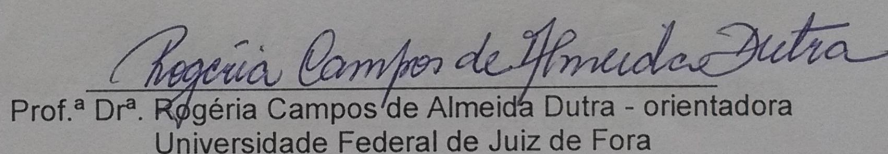 Rogéria Campos de Almeida Dutra
Prof.ª Drª. Rogéria Campos de Almeida Dutra - orientadora
Universidade Federal de Juiz de Fora